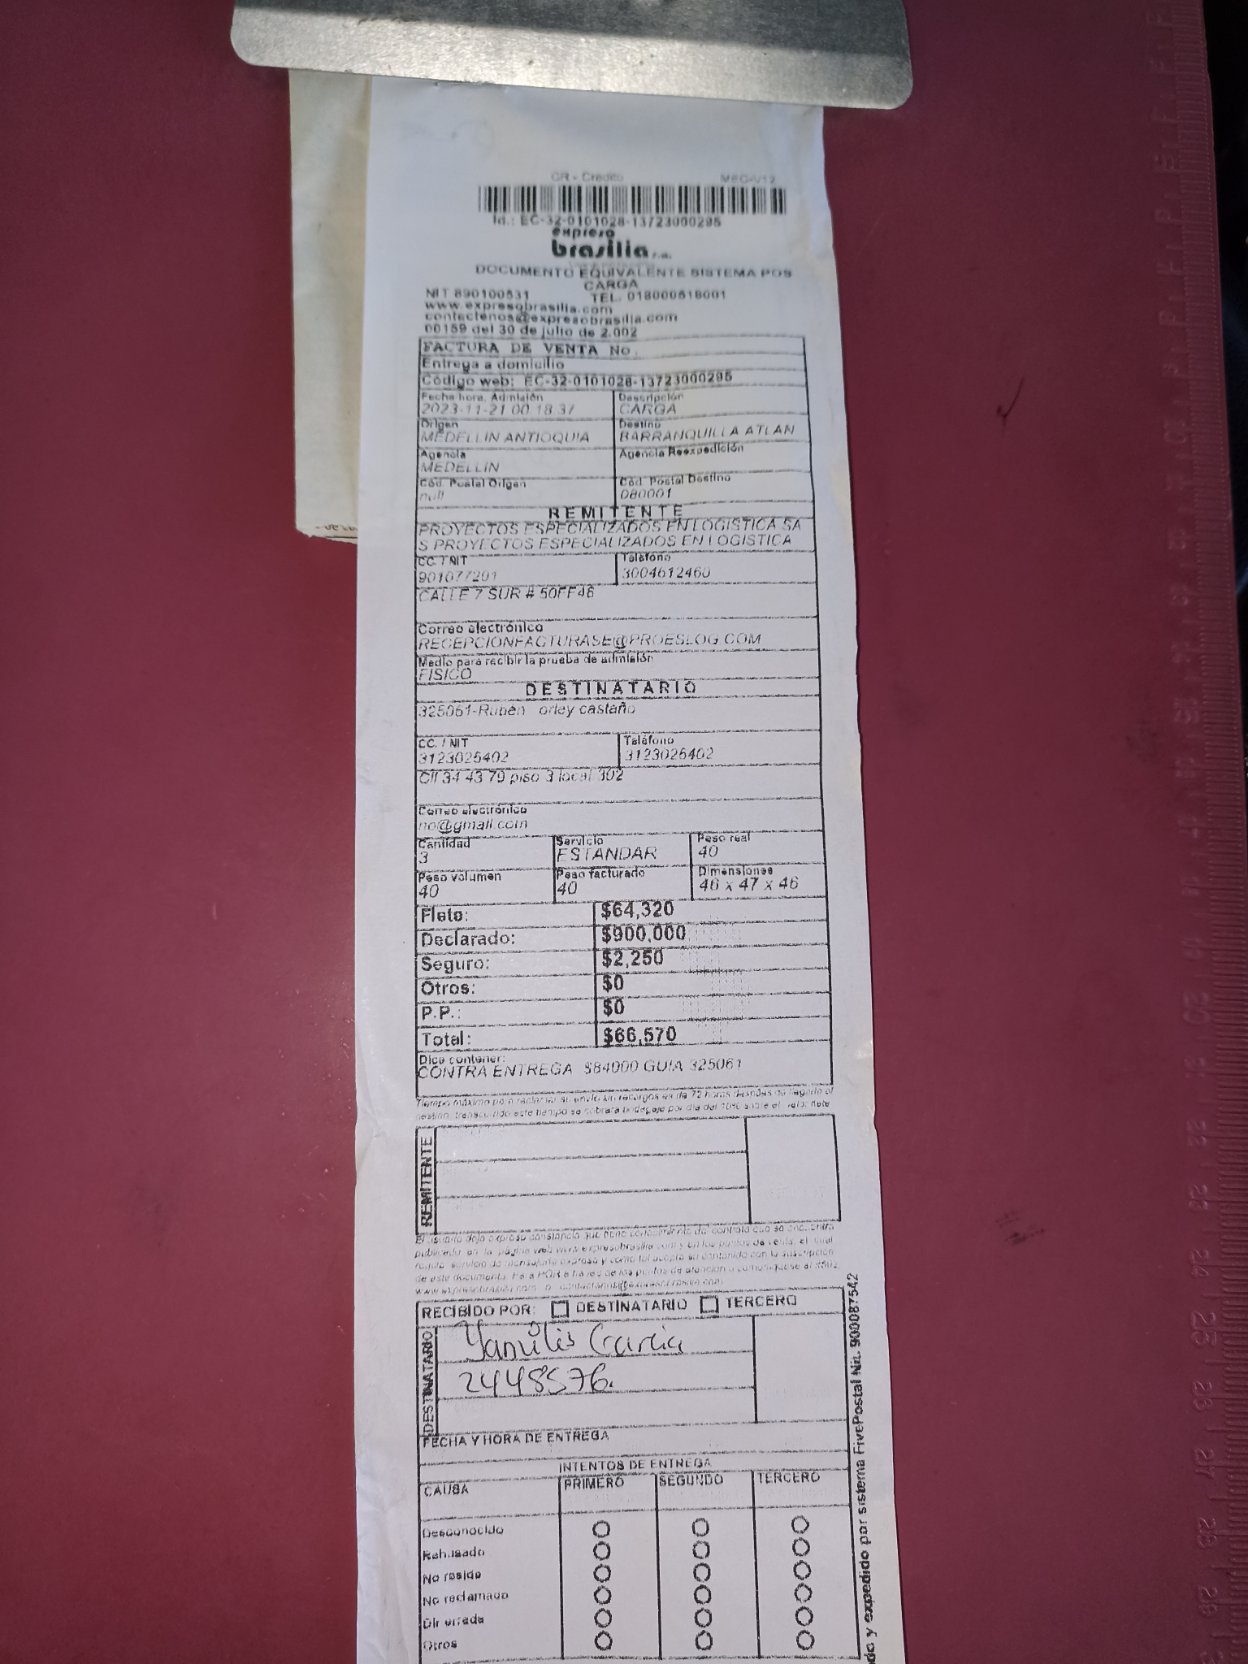 CR - Credito MEC-V12
Id.: EC-32-0101028-13723000295
expreso
brasilia s.a.
DOCUMENTO EQUIVALENTE SISTEMA POS
CARGA
NIT 890100531 TEL. 018000518001
www.expresobrasilia.com
contactenos@expresobrasilia.com
00159 del 30 de julio de 2.002
FACTURA DE VENTA No.
Entrega a domicilio
Código web: EC-32-0101028-13723000295
Fecha hora, Admisión Descripción
2023-11-21 00:18:37 CARGA
Origen Destino
MEDELLIN ANTIOQUIA BARRANQUILLA ATLAN
Agencia Agencia Reexpedición
MEDELLIN
Cód. Postal Origen Cód. Postal Destino
null 080001
REMITENTE
PROYECTOS ESPECIALIZADOS EN LOGISTICA SA
S PROYECTOS ESPECIALIZADOS EN LOGISTICA
CC. / NIT Teléfono
901077201 3004612460
CALLE 7 SUR # 50FF46
Correo electrónico
RECEPCIONFACTURASE@PROESLOG.COM
Medio para recibir la prueba de admisión
FISICO
DESTINATARIO
325061-Ruben orley castaño
CC. / NIT Teléfono
3123025402 3123025402
Cll 34 43 79 piso 3 local 302
Correo electrónico
no@gmail.com
Cantidad Servicio Peso real
3 ESTANDAR 40
Peso volumen Peso facturado Dimensiones
40 40 46 x 47 x 46
Flete: $64,320
Declarado: $900,000
Seguro: $2,250
Otros: $0
P.P.: $0
Total: $66,570
Dice contener:
CONTRA ENTREGA $84000 GUIA 325061
REMITENTE
RECIBIDO POR: DESTINATARIO TERCERO
DESTINATARIO
Yanilis Garcia
2448576.
FECHA Y HORA DE ENTREGA
INTENTOS DE ENTREGA
CAUSA PRIMERO SEGUNDO TERCERO
Desconocido
Rehusado
No reside
No reclamado
Dir errada
Otros
do y expedido por sistema FivePostal Nit. 900087542